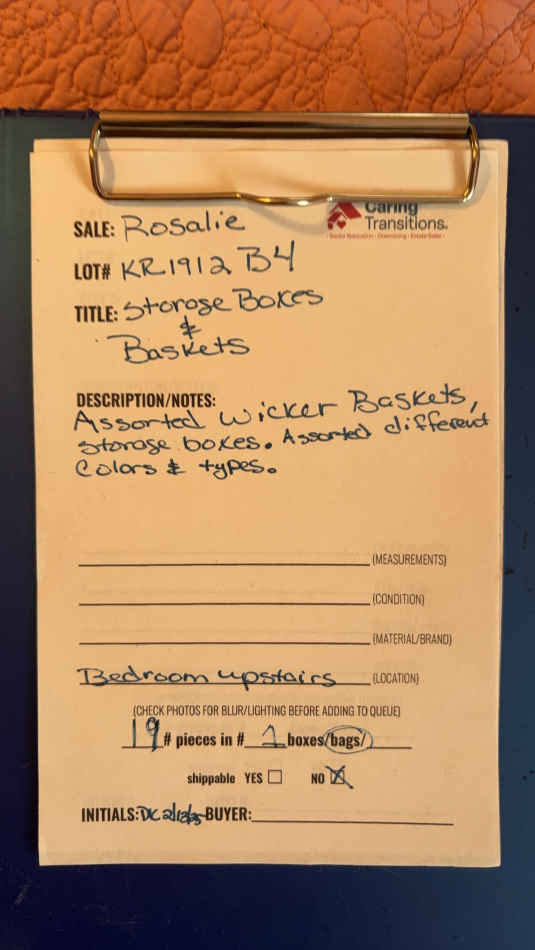 Caring
Transitions.
SALE: Rosalie
LOT# KR1912 B4
TITLE: Storage Boxes
&
Baskets
DESCRIPTION/NOTES:
Assorted Wicker Baskets,
storage boxes. Assorted different
colors & types.
(MEASUREMENTS)
(CONDITION)
(MATERIAL/BRAND)
Bedroom upstairs (LOCATION)
(CHECK PHOTOS FOR BLUR/LIGHTING BEFORE ADDING TO QUEUE)
19 # pieces in # 1 boxes/bags/
shippable YES NO X
INITIALS: DC BUYER: